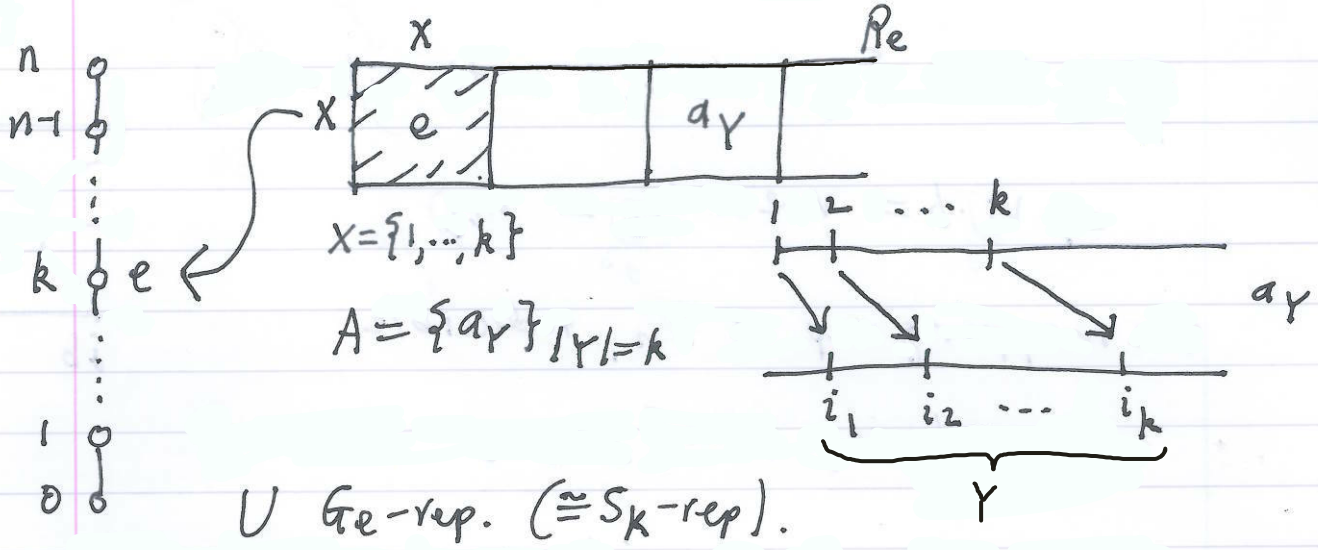 n
n-1
k e
1
0
X
R_e
X e a_Y
X={1,...,k}
A={a_Y}_{|Y|=k}
1 2 ... k
a_Y
i_1 i_2 ... i_k
Y
U G_e-rep. (≅S_k-rep).